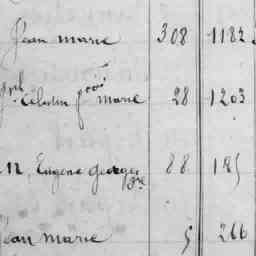 Jean marie 308 1182
Célestin marie 28 1203
Eugène georges 88 185
Jean marie 5 266